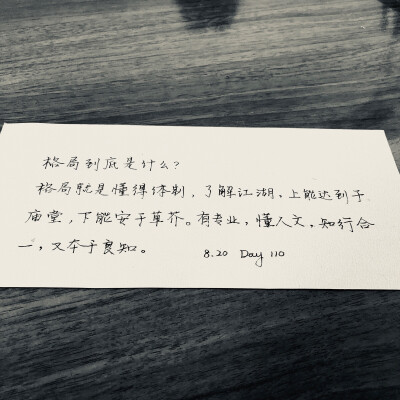 格局到底是什么?
格局就是懂得体制,了解江湖,上能达到于
庙堂,下能安于草芥。有专业,懂人文,知行合
一,又本于良知。 8.20 Day 110